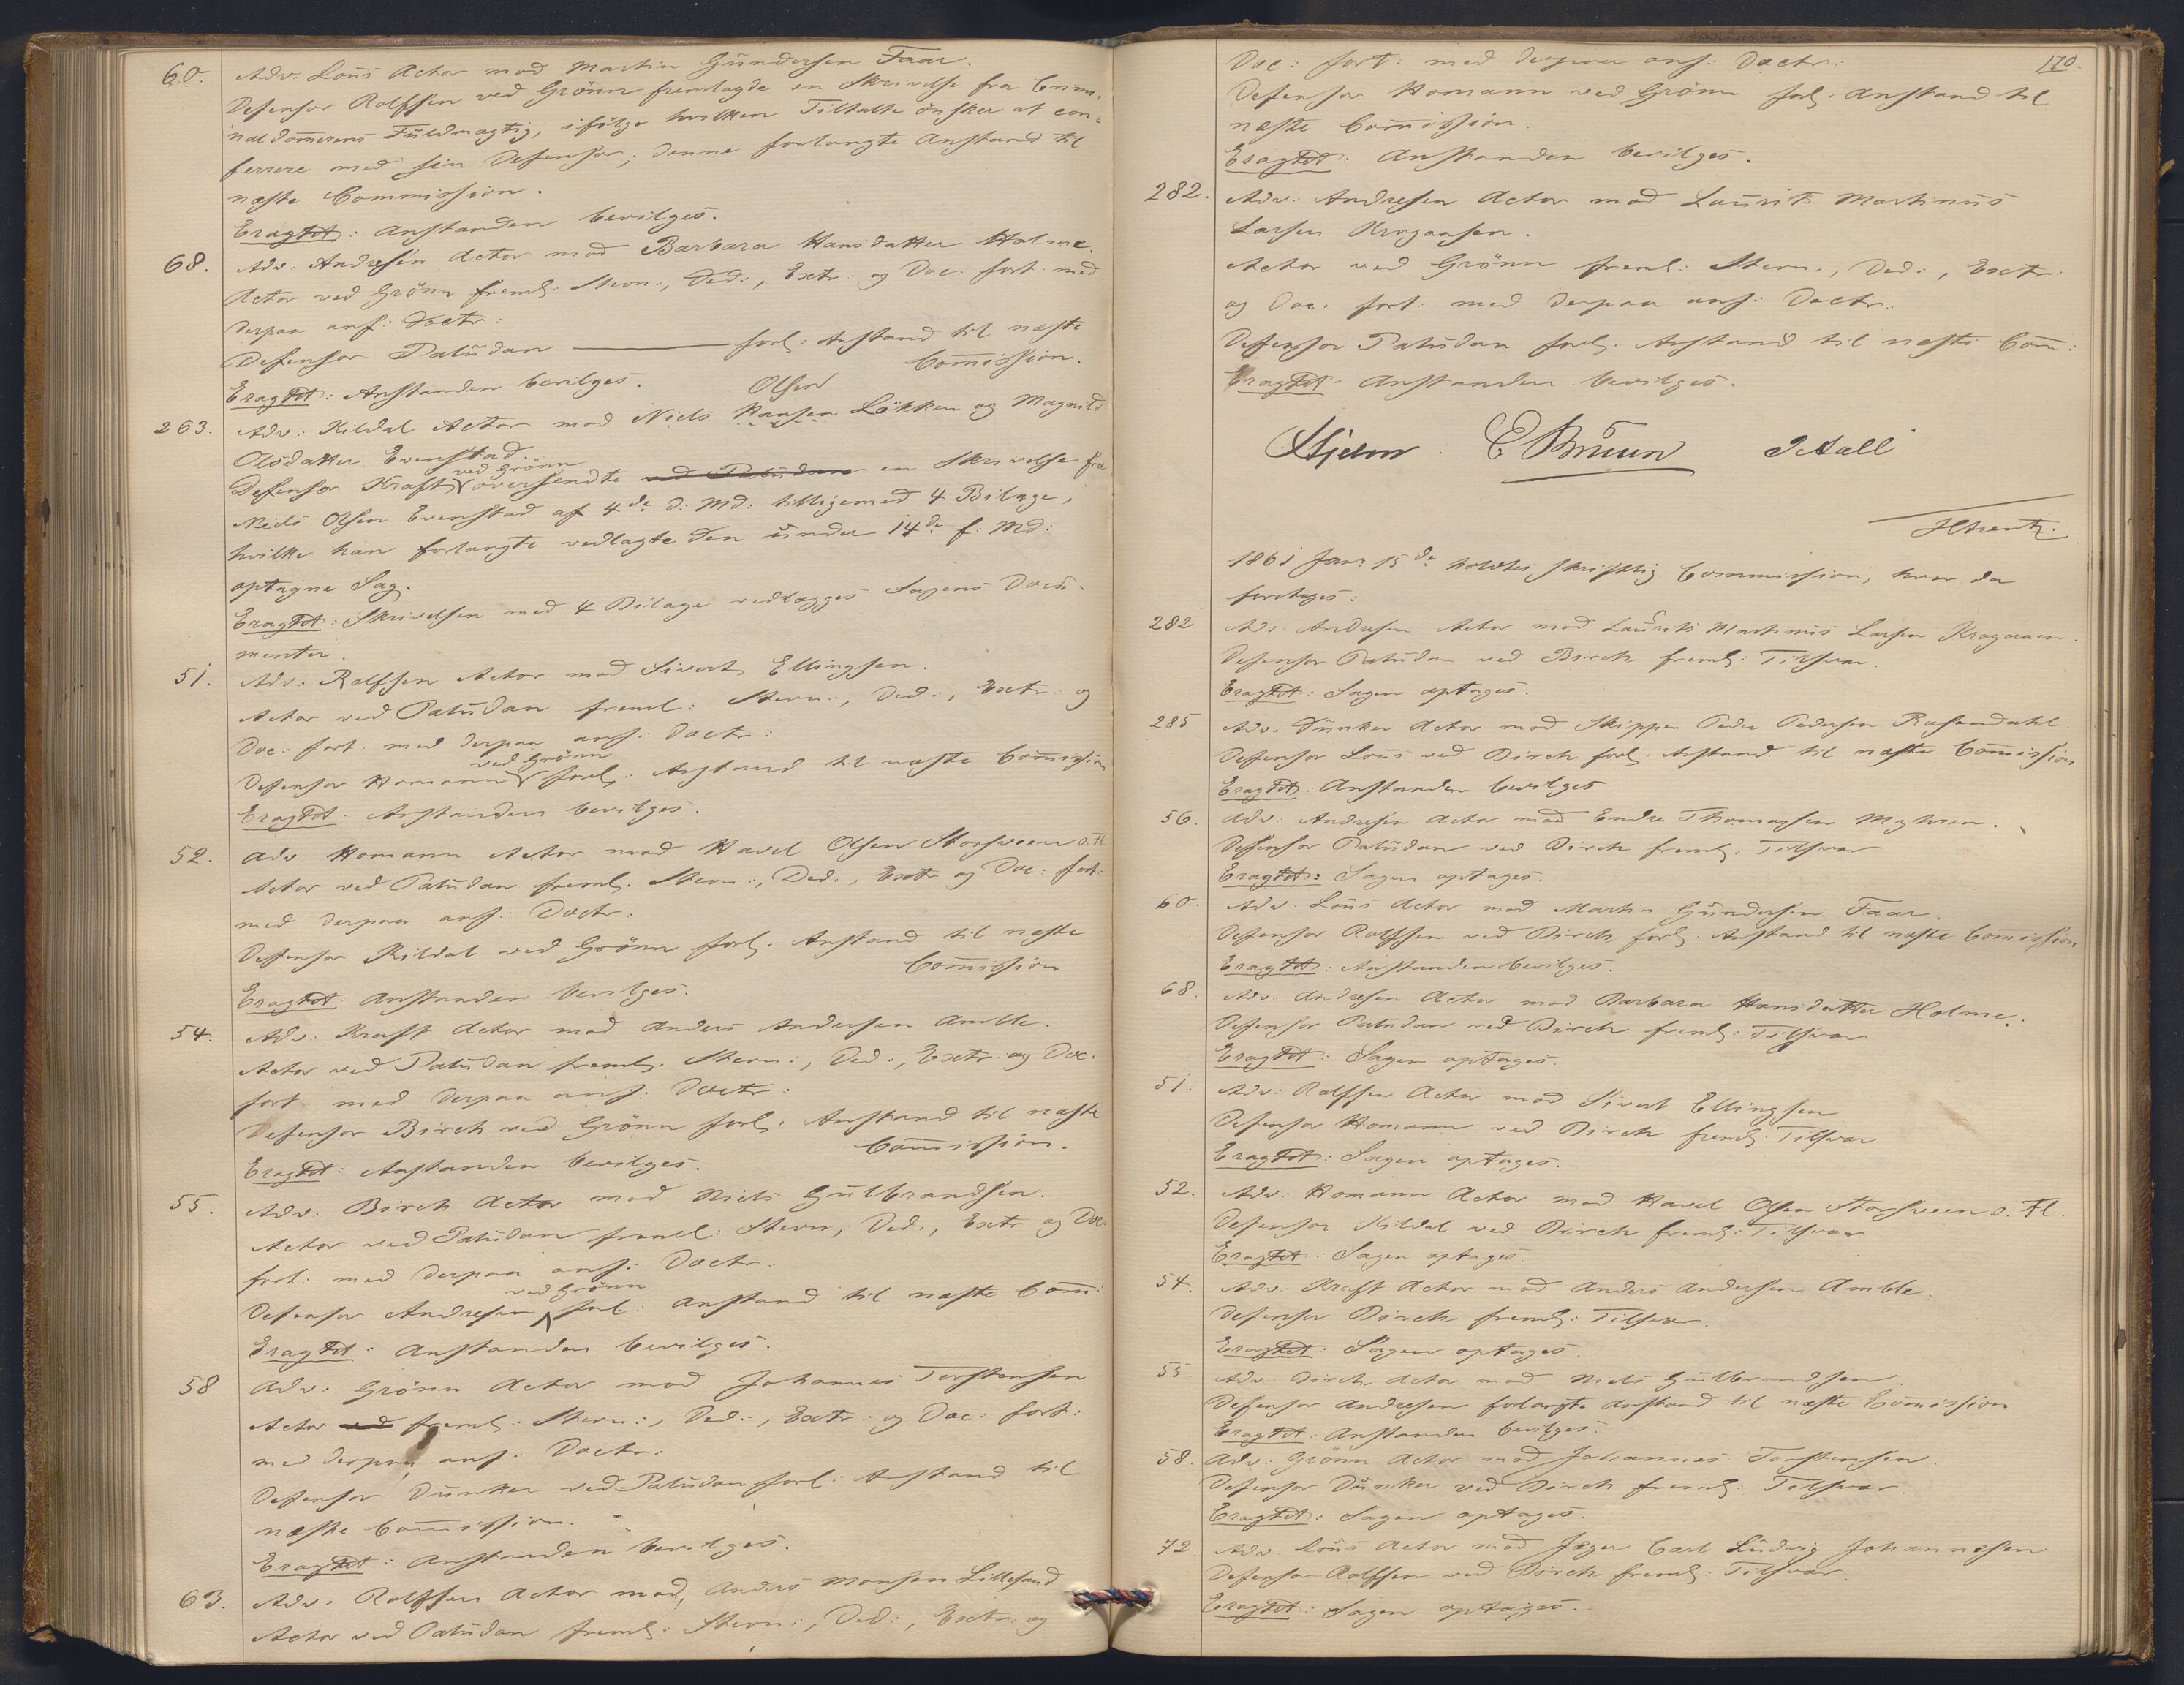 60. Adv: Lous Actor mod Martin Gundersen Faar.
Defensor Rolfsen ved Grönn fremlagde en Skrivelse fra Crimi-
naldom̅erens Fuldmægtig, ifölge hvilken Tiltalte önsker at con-
ferrere med sin Defensor; denne forlangte Anstand til
næste Commission.
Eragtet: Anstanden bevilges.
68. Adv: Andresen Actor mod Barbara Hansdatter Holme.
Actor ved Grönn freml: Stevn:, Ded:, Extr: og Doc: fort: med
derpaa anf: Doctr:
Defensor Paludan — forl: Anstand til næste
Com̅ission.
Eragtet: Anstanden bevilges.
Olsen
263. Adv: Kildal Actor mod Niels Hansen Lökken og Magnild
Olsdatter Evenstad.
ved Grönn
Defensor Kraft oversendte ved Paludan en Skrivelse fra
Niels Olsen Evenstad af 4de d: Md: tilligemed 4 Bilage,
hvilke han forlangte vedlagte den under 14de f: Md:
optagne Sag.
Eragtet: Skrivelsen med 4 Bilage vedlægges Sagens Docu-
menter.
51. Adv: Rolfsen Actor mod Sivert Ellingsen.
Actor ved Paludan freml: Stevn:, Ded:, Extr: og
Doc: fort: med derpaa anf: Doctr:
ved Grönn
Defensor Homann forl: Anstand til næste Com̅ission
Eragtet: Anstanden bevilges.
52. Adv: Homann Actor mod Havel Olsen Storsveen o. Fl
Actor ved Paludan freml: Stevn:, Ded:, Extr og Doc: fort:
med derpaa anf: Doctr:
Defensor Kildal ved Grönn forl: Anstand til næste
Com̅ission
Eragtet: Anstanden bevilges.
54. Adv: Kraft Actor mod Anders Andersen Amble.
Actor ved Paludan freml: Stevn:, Ded:, Extr: og Doc:
fort med derpaa anf: Doctr:
Defensor Birch ved Grönn forl: Anstand til næste
Com̅ission.
Eragtet: Anstanden bevilges.
55. Adv: Birch Actor mod Niels Gulbrandsen.
Actor ved Paludan freml: Stevn, Ded:, Extr og Doc
fort: med derpaa anf: Doctr:
ved Grönn
Defensor Andresen forl: Anstand til næste Com̅:
Eragtet: Anstanden bevilges.
58 Adv: Grönn Actor mod Johannes Torstensen
Actor ved freml: Stevn:, Ded:, Extr: og Doc: fort:
med derpaa anf: Doctr:
Defensor Dunker ved Paludan forl: Anstand til
næste Com̅ission.
Eragtet: Anstanden bevilges.
63. Adv: Rolfsen Actor mod Anders Monsen Lillesand
Actor ved Paludan freml: Stevn:, Ded:, Extr: og
170.
Doc: fort: med derpaa anf: Doctr:
Defensor Homann ved Grönn forl: Anstand til
næste Com̅ission.
Eragtet: Anstanden bevilges.
282. Adv: Andresen Actor mod Laurits Martinus
Larsen Kragaasen.
Actor ved Grönn freml: Stevn:, Ded:, Extr:
og Doc. fort: med derpaa anf: Doctr:
Defensor Paludan forl: Anstand til næste Com̅:
Eragtet: Anstanden bevilges.
Hjelm. E Bruun J Aall
1861 Jan: 15de holdtes skriftlig Commission, hvor da
foretoges:
282 Adv Andresen Actor mod Laurits Martinus Larsen Kragaasen.
Defensor Paludan ved Birch freml: Tilsvar.
Eragtet: Sagen optages.
285 Adv. Dunker Actor mod Skipper Peder Pedersen Rosendahl.
Defensor Lous ved Birch forl. Anstand til næste Com̅ission
Eragtet: Anstanden bevilges
56. Adv: Andresen Actor mod Endre Thomassen Myhren.
Defensor Paludan ved Birch freml: Tilsvar
Eragtet: Sagen optages.
60. Adv: Lous Actor mod Martin Gundersen Faar.
Defensor Rolfsen ved Birch forl: Anstand til næste Com̅ission
Eragtet: Anstanden bevilges.
68. Adv: Andresen Actor mod Barbara Hansdatter Holme.
Defensor Paludan ved Birch freml: Tilsvar
Eragtet: Sagen optages.
51. Adv: Rolfsen Actor mod Sivert Ellingsen
Defensor Homann ved Birch freml: Tilsvar
Eragtet: Sagen optages.
52. Adv: Homann Actor mod Havel Olsen Storsveen o. Fl.
Defensor Kildal ved Birch freml: Tilsvar
Eragtet: Sagen optages.
54. Adv: Kraft Actor mod Anders Andersen Amble.
Defensor Birch freml: Tilsvar.
Eragtet: Sagen optages.
55. Adv: Birch Actor mod Niels Gulbrandsen.
Defensor Andresen forlangte Anstand til næste Com̅ission
Eragtet: Anstanden bevilges.
58. Adv: Grönn Actor mod Johannes Torstensen.
Defensor Dunker ved Birch freml: Tilsvar.
Eragtet: Sagen optages.
72. Adv. Lous Actor mod Jæger Carl Ludvig Johannesen
Defensor Rolfsen ved Birch freml: Tilsvar
Eragtet: Sagen optages.